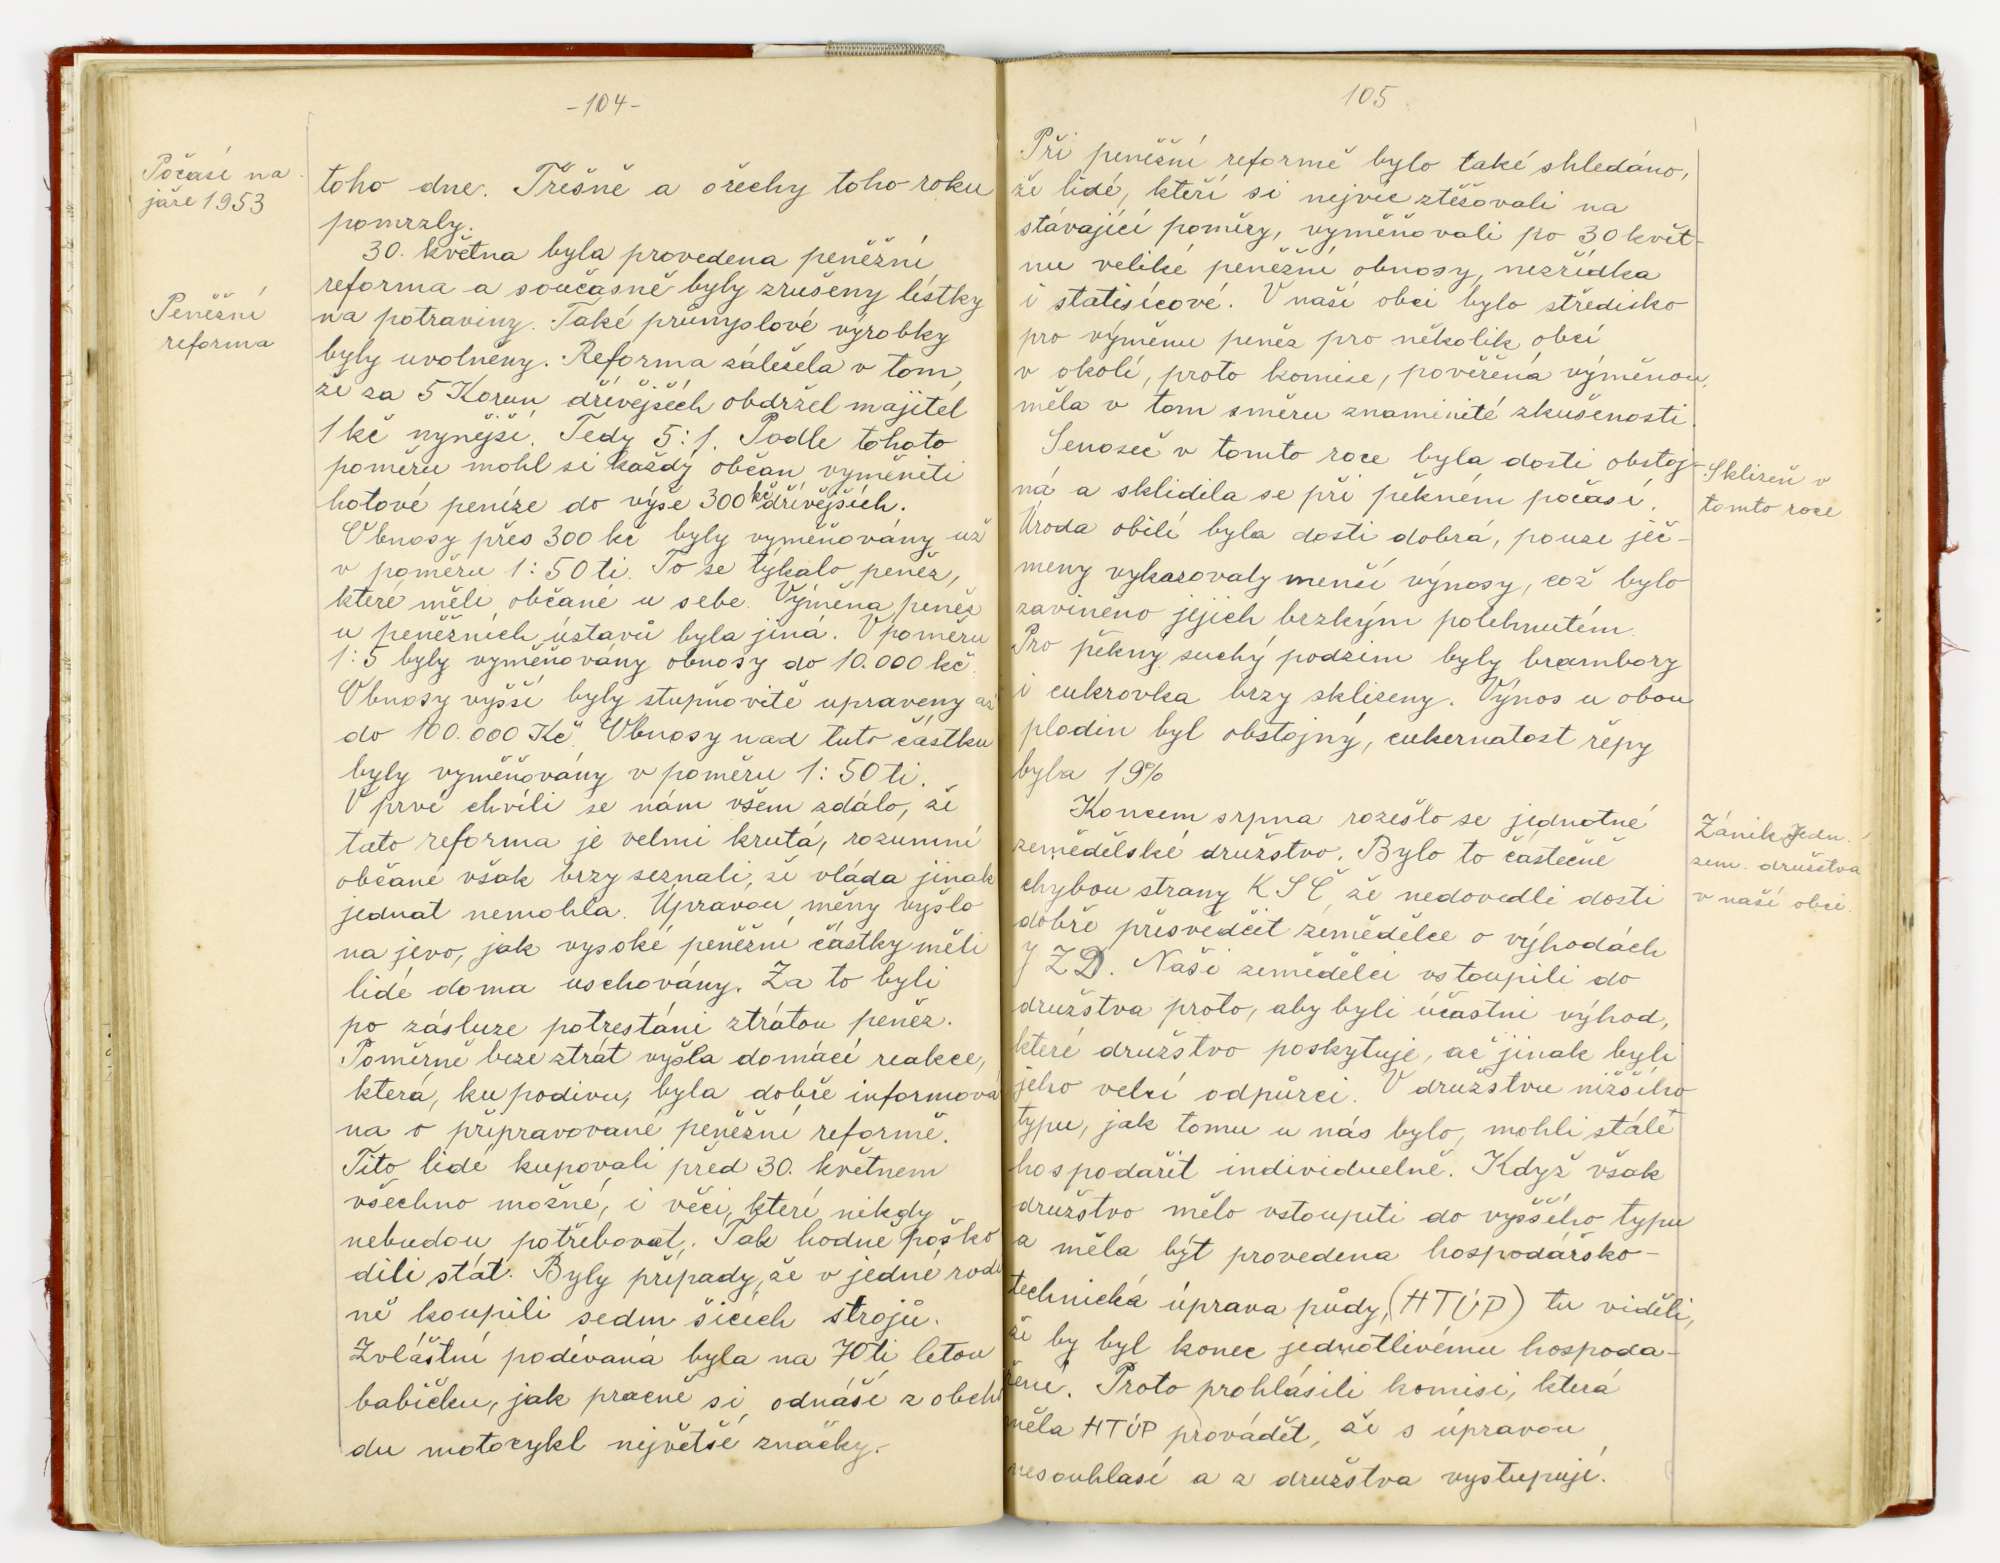 -104-
Počasí na
jaře 1953
toho dne. Třešně a ořechy toho roku
pomrzly.
30. května byla provedena peněžní
Peněžní
reforma
reforma a současně byly zrušeny lístky
na potraviny. Také průmyslové výrobky
byly uvolněny. Reforma záležela v tom,
že za 5 Korun dřívějších obdržel majitel
1 kč nynější. Tedy 5:1. Podle tohoto
poměru mohl si každý občan vyměniti
hotové peníze do výše 300 kč dřívějších.
Obnosy přes 300 kč byly vyměňovány už
v poměru 1:50 ti. To se týkalo peněz,
které měli občané u sebe. Výměna peněz
u peněžních ústavů byla jiná. V poměru
1:5 byly vyměňovány obnosy do 10.000 kč.
Obnosy vyšší byly stupňovitě upraveny až
do 100.000 Kč. Obnosy nad tuto částku
byly vyměňovány v poměru 1:50 ti.
V prvé chvíli se nám všem zdálo, že
tato reforma je velmi krutá, rozumní
občané však brzy seznali, že vláda jinak
jednat nemohla. Úpravou měny vyšlo
na jevo, jak vysoké peněžní částky měli
lidé doma uschovány. Za to byli
po zásluze potrestáni ztrátou peněz.
Poměrně beze ztrát vyšla domácí reakce,
která, ku podivu, byla dobře informová
na o připravované peněžní reformě.
Tito lidé kupovali před 30. květnem
všechno možné, i věci, které nikdy
nebudou potřebovat. Tak hodně poško
dili stát. Byly případy, že v jedné rodi
ně koupili sedm šicích strojů.
Zvláštní podívaná byla na 70 ti letou
babičku, jak pracně si odnáší z obcho
du motocykl největší značky.
105
Při peněžní reformě bylo také shledáno,
že lidé, kteří si nejvíc ztěžovali na
stávající poměry, vyměňovali po 30 květ-
nu veliké peněžní obnosy, nezřídka
i statisícové. V naší obci bylo středisko
pro výměnu peněz pro několik obcí
v okolí, proto komise, pověřená výměnou,
měla v tom směru znamenité zkušenosti.
Senoseč v tomto roce byla dosti obstoj-
Sklizeň v
tomto roce
ná a sklidila se při pěkném počasí.
Úroda obilí byla dosti dobrá, pouze ječ-
meny vykazovaly menší výnosy, což bylo
zaviněno jejich brzkým polehnutím.
Pro pěkný suchý podzim byly brambory
i cukrovka brzy sklizeny. Výnos u obou
plodin byl obstojný, cukernatost řepy
byla 19%
Koncem srpna rozešlo se jednotné
Zánik Jedn.
zem. družstva
v naší obci.
zemědělské družstvo. Bylo to částečně
chybou strany KSČ, že nedovedli dosti
dobře přesvědčit zemědělce o výhodách
JZD. Naši zemědělci vstoupili do
družstva proto, aby byli účastni výhod,
které družstvo poskytuje, ač jinak byli
jeho velcí odpůrci. V družstvu nižšího
typu, jak tomu u nás bylo, mohli stále
hospodařit individuelně. Když však
družstvo mělo vstoupiti do vyššího typu
a měla být provedena hospodářsko-
technická úprava půdy, (HTÚP) tu viděli,
že by byl konec jednotlivému hospoda-
ření. Proto prohlásili komisi, která
měla HTÚP provádět, že s úpravou
nesouhlasí a z družstva vystupují.